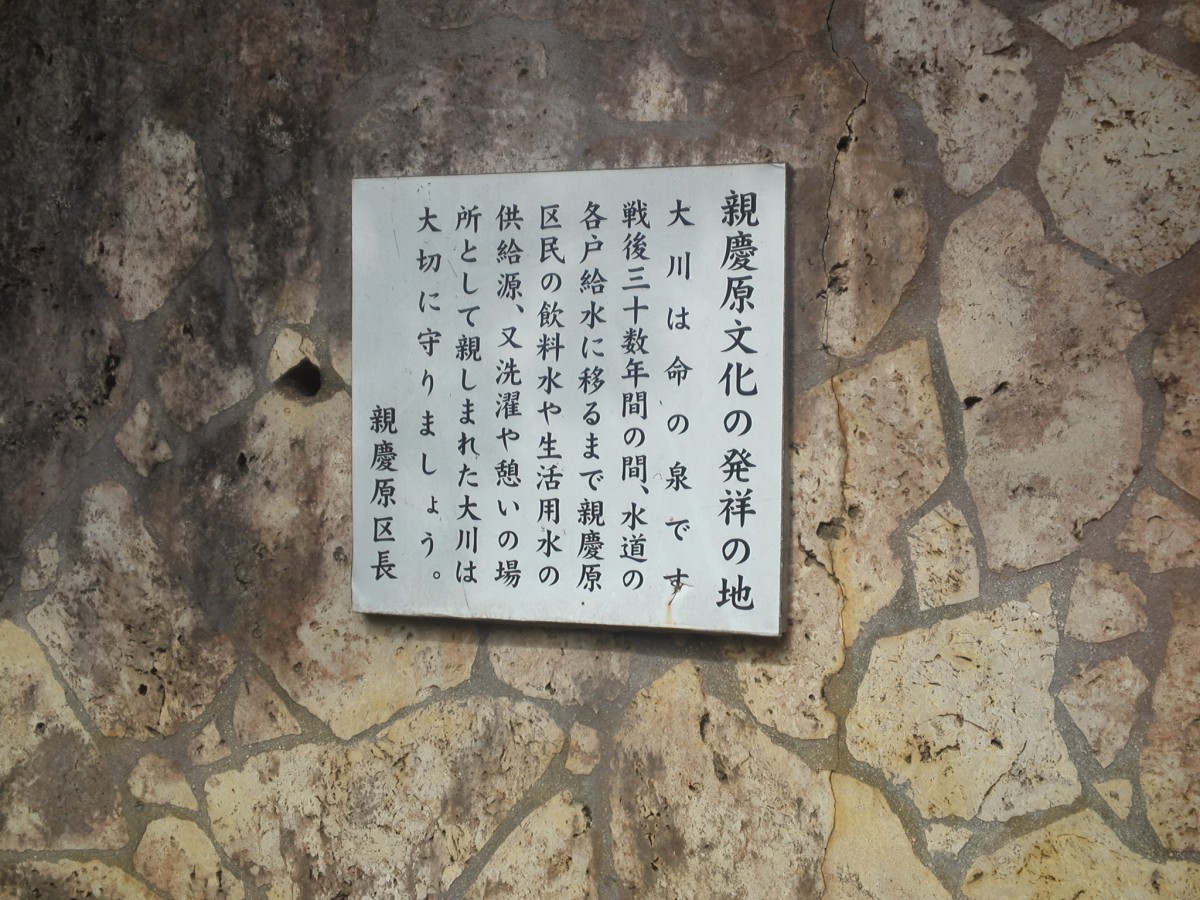 親慶原文化の発祥の地
大川は命の泉です
戦後三十数年間の間、水道の
各戸給水に移るまで親慶原
区民の飲料水や生活用水の
供給源、又洗濯や憩いの場
所として親しまれた大川は
大切に守りましょう。
親慶原区長